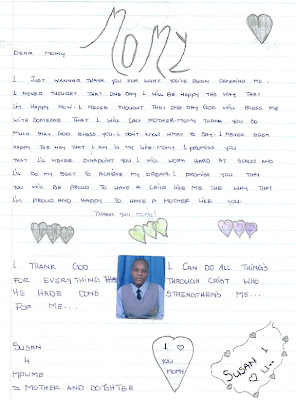 MOMY
DEAR MOMY
I JUST WANNAR THANK YOU FOR WHAT YOU'VE BEEN OFFERING ME.
I NEVER THOUGHT THAT ONE DAY I WILL BE HAPPY THE WAY THAT
I'M HAPPY NOW. I NEVER THOUGHT THAT ONE DAY GOD WILL BLESS ME
WITH SOMEONE THAT I WILL CALL MOTHER-MOMY THANK YOU SO
MUCH MAY GOD BLESS YOU. I DON'T KNOW WHAT TO SAY. I NEVER BEEN
HAPPY THE WAY THAT I AM IN MY LIFE. MOMY I PROMISE YOU
THAT I'LL NEVER DISAPOINT YOU I WILL WORK HARD AT SCHOOL AND
I'LL DO MY BEST TO ACHIEVE MY DREAM. I PROMISE YOU THAT
YOU WILL BE PROUD TO HAVE A CHILD LIKE ME THE WAY THAT
I'M PROUD AND HAPPY TO HAVE A MOTHER LIKE YOU.
THANK YOU MOMY
I THANK GOD
FOR EVERYTHING
HE HADE DONE
FOR ME...
I CAN DO ALL THING'S
THROUGH CRIST WHO
STRENGTHENS ME...
SUSAN
4
MPUME
= MOTHER AND DOUGHTER
I
YOU
MOMY
SUSAN I
U...